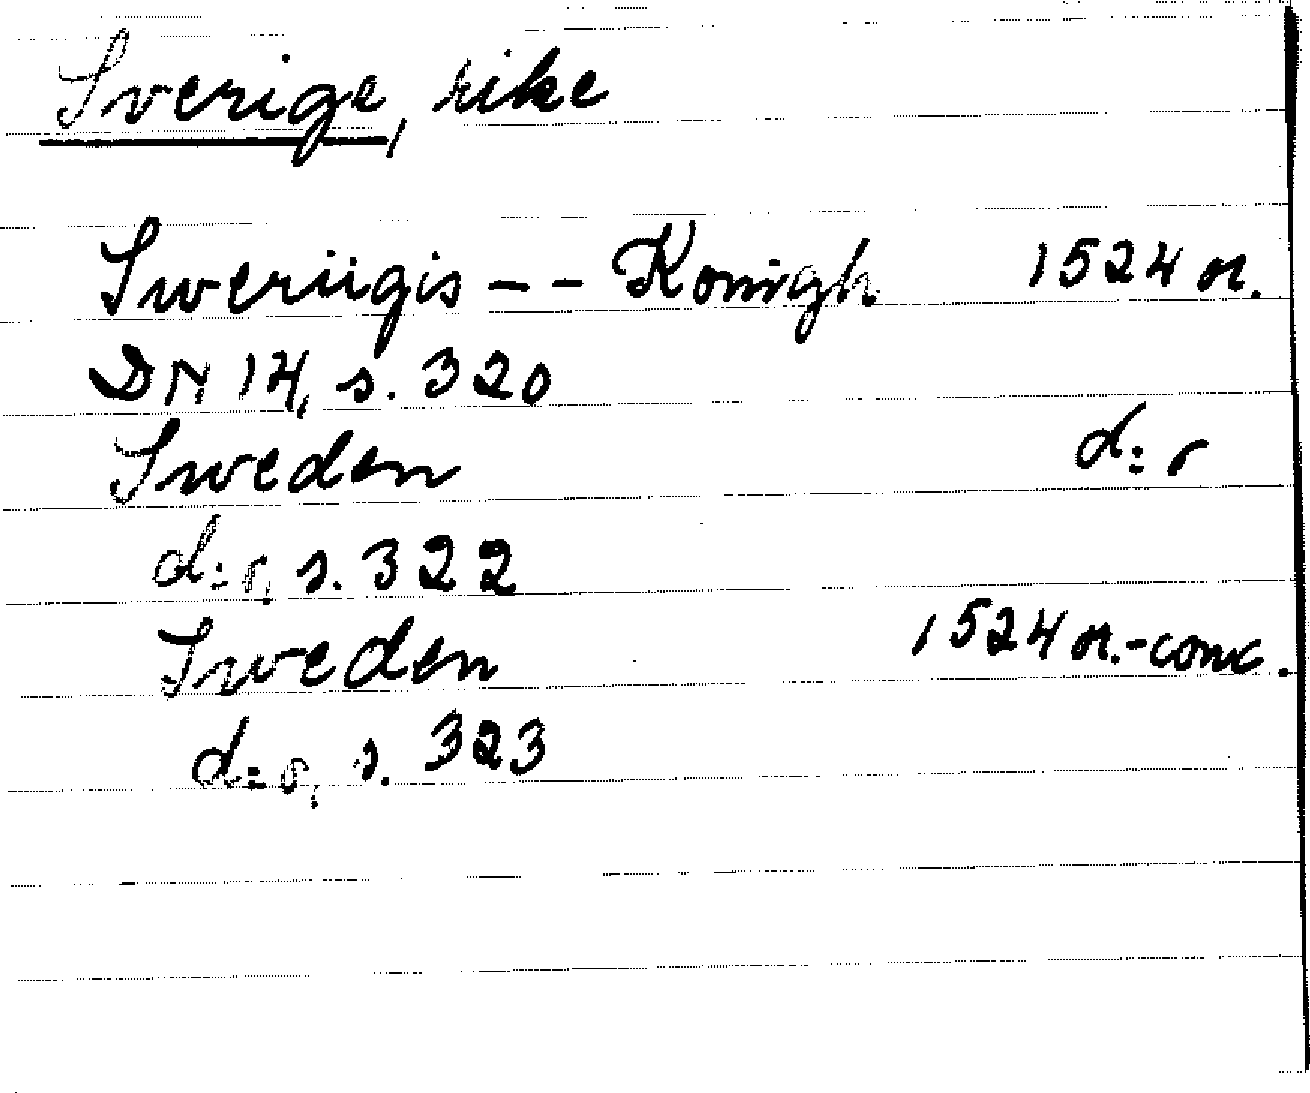 Sverige, rike
Sweriigis -- Konigh 1524 or.
DN 14, s. 320
Sweden d:o
d:o, s. 322
Sweden 1524 or.-conc.
d:o, s. 323